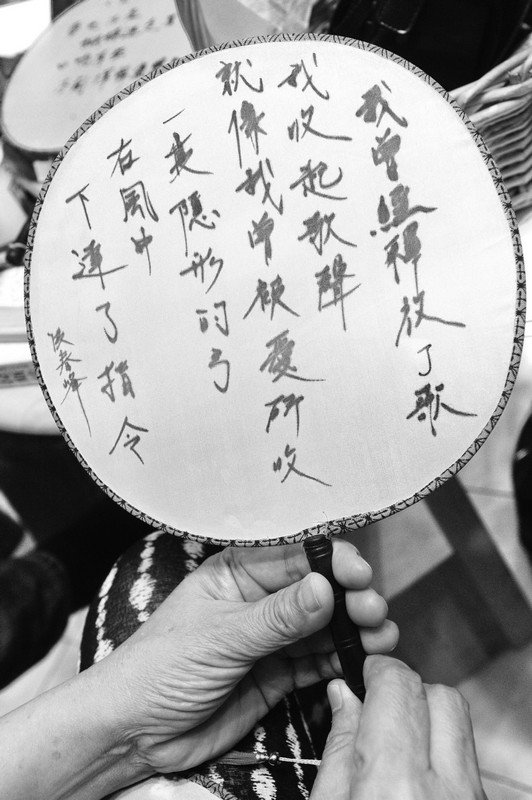 我曾經釋放了歌
我收起歌聲
就像我曾被愛所收
一張隱形的弓
在風中
下達了指令
洪春峰